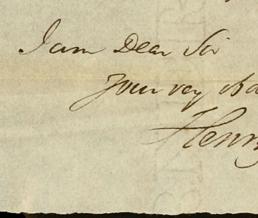 I am Dear Sir
Your very
Henry